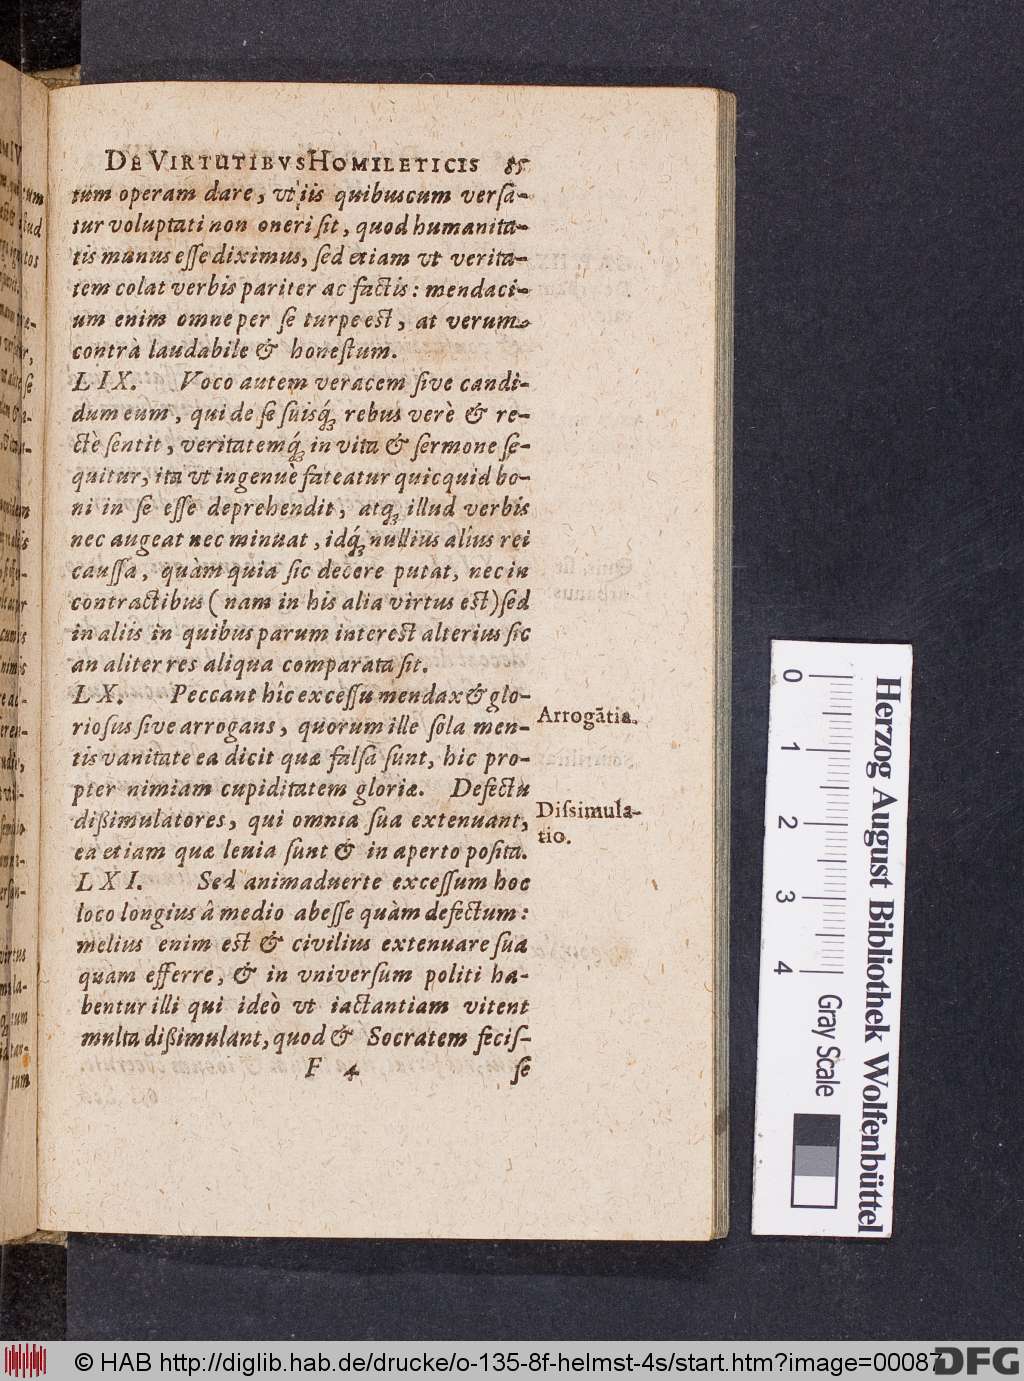 DE VIRTUTIBVS HOMILETICIS 85
tum operam dare, vt iis quibuscum versa-
tur voluptati non oneri sit, quod humanita-
tis munus esse diximus, sed etiam vt verita-
tem colat verbis pariter ac factis: mendaci-
um enim omne per se turpe est, at verum
contrà laudabile & honestum.
LIX. Voco autem veracem sive candi-
dum eum, qui de se suisq́; rebus verè & re-
ctè sentit, veritatemq́; in vita & sermone se-
quitur, ita vt ingenuè fateatur quicquid bo-
ni in se esse deprehendit, atq; illud verbis
nec augeat nec minuat, idq́; nullius alius rei
caussa, quàm quia sic decere putat, nec in
contractibus (nam in his alia virtus est) sed
in aliis in quibus parum interest alterius sic
an aliter res aliqua comparata sit.
LX. Peccant hîc excessu mendax & glo-
riosus sive arrogans, quorum ille sola men-
tis vanitate ea dicit quæ falsa sunt, hic pro-
pter nimiam cupiditatem gloriæ. Defectu
dißimulatores, qui omnia sua extenuant,
ea etiam quæ leuia sunt & in aperto posita.
LXI. Sed animaduerte excessum hoc
loco longius â medio abesse quàm defectum:
melius enim est & civilius extenuare sua
quàm efferre, & in vniversum politi ha-
bentur illi qui ideò vt iactantiam vitent
multa dißimulant, quod & Socratem fecis-
F 4 se
Arrogātia.
Dissimula-
tio.
Herzog August Bibliothek Wolfenbüttel
0 1 2 3 4
Gray Scale
© HAB http://diglib.hab.de/drucke/o-135-8f-helmst-4s/start.htm?image=00087
DFG